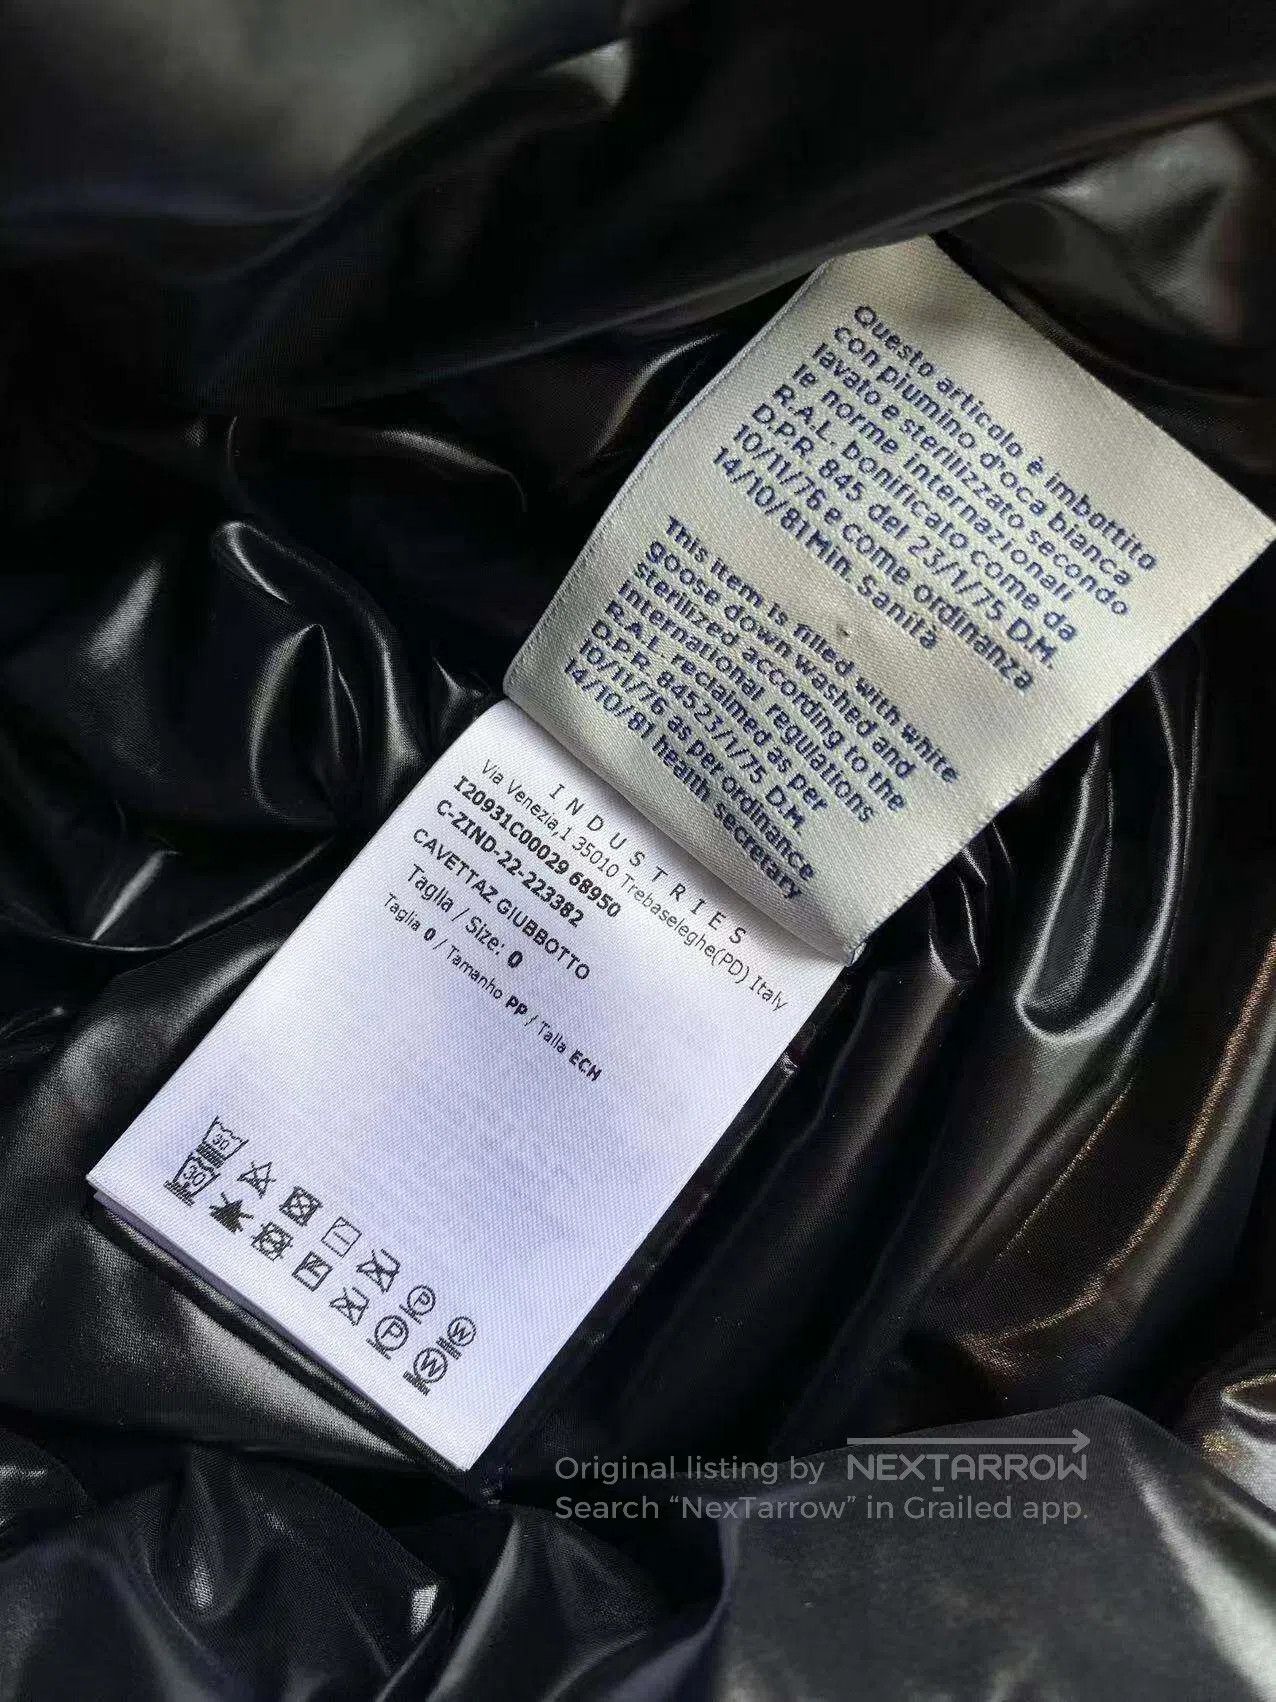 Questo articolo è imbottito
con piumino d'oca bianca
lavato e sterilizzato secondo
le norme internazionali
R.A.L. bonificato come da
D.P.R. 845 del 23/1/75 D.M.
10/11/76 e come ordinanza
14/10/81 Min. Sanità
This item is filled with white
goose down washed and
sterilized according to the
international regulations
R.A.L. reclaimed as per
D.P.R. 84523/1/75 D.M.
10/11/76 as per ordinance
14/10/81 health secretary
INDUSTRIES
Via Venezia,1 35010 Trebaseleghe(PD) Italy
I20931C00029 68950
C-ZIND-22-223382
CAVETTAZ GIUBBOTTO
Taglia / Size: 0
Taglia 0 / Tamanho PP / Talla ECH
30
P
W
30
P
W
Original listing by NEXTARROW
Search “NexTarrow” in Grailed app.